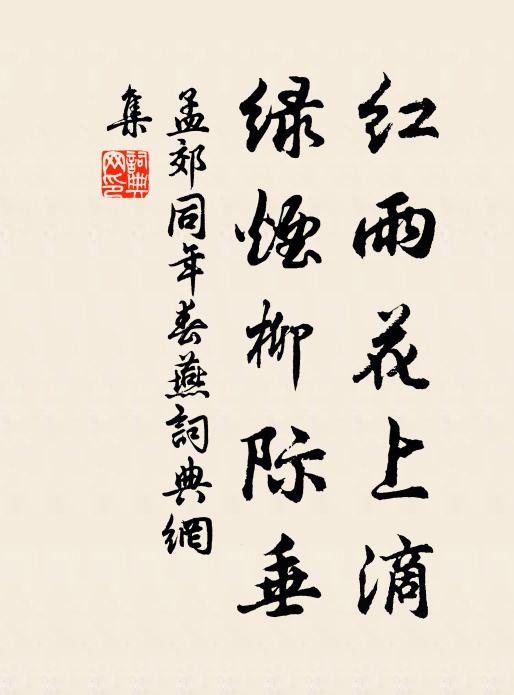 红雨花上滴
绿烟柳际垂
孟郊同年春燕詞典網
集
詞典網印